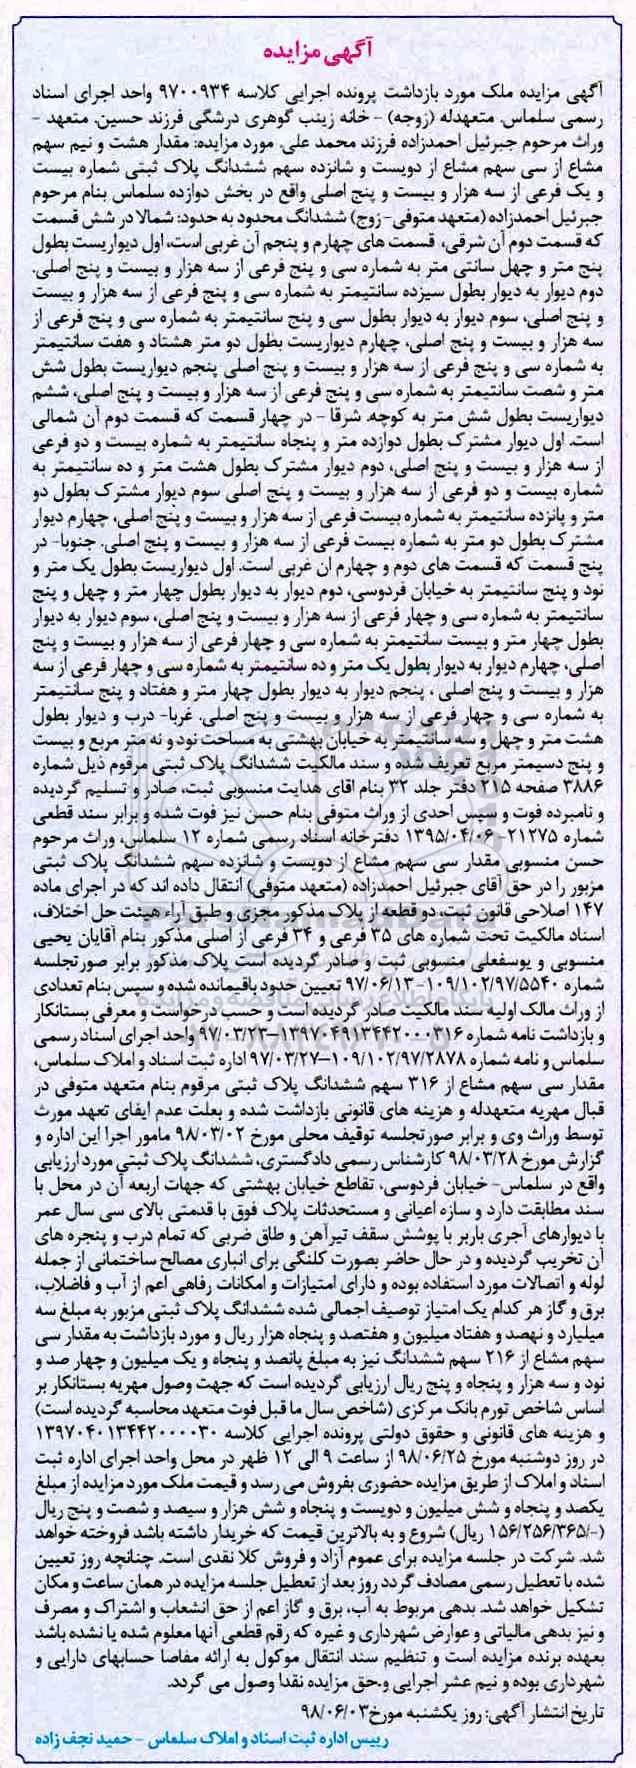 آگهی مزایده
آگهی مزایده ملک مورد بازداشت پرونده اجرایی کلاسه ۹۷۰۰۹۳۴ واحد اجرای اسناد
رسمی سلماس. متعهدله (زوجه) - خانه زینب گوهری درشگی فرزند حسین. متعهد -
وراث مرحوم جبرئیل احمدزاده فرزند محمد علی. مورد مزایده: مقدار هشت و نیم سهم
مشاع از سی سهم مشاع از دویست و شانزده سهم ششدانگ پلاک ثبتی شماره بیست
و یک فرعی از سه هزار و بیست و پنج اصلی واقع در بخش دوازده سلماس بنام مرحوم
جبرئیل احمدزاده (متعهد متوفی- زوج) ششدانگ محدود به حدود: شمالا در شش قسمت
که قسمت دوم آن شرقی، قسمت های چهارم و پنجم آن غربی است، اول دیواریست بطول
پنج متر و چهل سانتی متر به شماره سی و پنج فرعی از سه هزار و بیست و پنج اصلی.
دوم دیوار به دیوار بطول سیزده سانتیمتر به شماره سی و پنج فرعی از سه هزار و بیست
و پنج اصلی، سوم دیوار به دیوار بطول سی و پنج سانتیمتر به شماره سی و پنج فرعی از
سه هزار و بیست و پنج اصلی، چهارم دیواریست بطول دو متر هشتاد و هفت سانتیمتر
به شماره سی و پنج فرعی از سه هزار و بیست و پنج اصلی پنجم دیواریست بطول شش
متر و شصت سانتیمتر به شماره سی و پنج فرعی از سه هزار و بیست و پنج اصلی، ششم
دیواریست بطول شش متر به کوچه. شرقا - در چهار قسمت که قسمت دوم آن شمالی
است. اول دیوار مشترک بطول دوازده متر و پنجاه سانتیمتر به شماره بیست و دو فرعی
از سه هزار و بیست و پنج اصلی، دوم دیوار مشترک بطول هشت متر و ده سانتیمتر به
شماره بیست و دو فرعی از سه هزار و بیست و پنج اصلی سوم دیوار مشترک بطول دو
متر و پانزده سانتیمتر به شماره بیست فرعی از سه هزار و بیست و پنج اصلی، چهارم دیوار
مشترک بطول دو متر به شماره بیست فرعی از سه هزار و بیست و پنج اصلی. جنوبا- در
پنج قسمت که قسمت های دوم و چهارم ان غربی است. اول دیواریست بطول یک متر و
نود و پنج سانتیمتر به خیابان فردوسی، دوم دیوار به دیوار بطول چهار متر و چهل و پنج
سانتیمتر به شماره سی و چهار فرعی از سه هزار و بیست و پنج اصلی، سوم دیوار به دیوار
بطول چهار متر و بیست سانتیمتر به شماره سی و چهار فرعی از سه هزار و بیست و پنج
اصلی، چهارم دیوار به دیوار بطول یک متر و ده سانتیمتر به شماره سی و چهار فرعی از سه
هزار و بیست و پنج اصلی ، پنجم دیوار به دیوار بطول چهار متر و هفتاد و پنج سانتیمتر
به شماره سی و چهار فرعی از سه هزار و بیست و پنج اصلی. غربا- درب و دیوار بطول
هشت متر و چهل و سه سانتیمتر به خیابان بهشتی به مساحت نود و نه متر مربع و بیست
و پنج دسیمتر مربع تعریف شده و سند مالکیت ششدانگ پلاک ثبتی مرقوم ذیل شماره
۳۸۸۶ صفحه ۲۱۵ دفتر جلد ۳۲ بنام اقای هدایت منسوبی ثبت، صادر و تسلیم گردیده
و نامبرده فوت و سپس احدی از وراث متوفی بنام حسن نیز فوت شده و برابر سند قطعی
شماره ۲۱۲۷۵-۱۳۹۵/۰۴/۰۶ دفترخانه اسناد رسمی شماره ۱۲ سلماس، وراث مرحوم
حسن منسوبی مقدار سی سهم مشاع از دویست و شانزده سهم ششدانگ پلاک ثبتی
مزبور را در حق آقای جبرئیل احمدزاده (متعهد متوفی) انتقال داده اند که در اجرای ماده
۱۴۷ اصلاحی قانون ثبت، دو قطعه از پلاک مذکور مجزی و طبق آراء هیئت حل اختلاف،
اسناد مالکیت تحت شماره های ۳۵ فرعی و ۳۴ فرعی از اصلی مذکور بنام آقایان یحیی
منسوبی و یوسفعلی منسوبی ثبت و صادر گردیده است پلاک مذکور برابر صورتجلسه
شماره ۱۰۹/۱۰۲/۹۷/۵۵۴۰-۹۷/۰۶/۱۳ تعیین حدود باقیمانده شده و سپس بنام تعدادی
از وراث مالک اولیه سند مالکیت صادر گردیده است و حسب درخواست و معرفی بستانکار
و بازداشت نامه شماره ۱۳۹۷۰۴۹۱۳۴۴۲۰۰۰۳۱۶-۹۷/۰۳/۲۳ واحد اجرای اسناد رسمی
سلماس و نامه شماره ۱۰۹/۱۰۲/۹۷/۲۸۷۸-۹۷/۰۳/۲۷ اداره ثبت اسناد و املاک سلماس،
مقدار سی سهم مشاع از ۳۱۶ سهم ششدانگ پلاک ثبتی مرقوم بنام متعهد متوفی در
قبال مهریه متعهدله و هزینه های قانونی بازداشت شده و بعلت عدم ایفای تعهد مورث
توسط وراث وی و برابر صورتجلسه توقیف محلی مورخ ۹۸/۰۳/۰۲ مامور اجرا این اداره و
گزارش مورخ ۹۸/۰۳/۲۸ کارشناس رسمی دادگستری، ششدانگ پلاک ثبتی مورد ارزیابی
واقع در سلماس- خیابان فردوسی، تقاطع خیابان بهشتی که جهات اربعه آن در محل با
سند مطابقت دارد و سازه اعیانی و مستحدثات پلاک فوق با قدمتی بالای سی سال عمر
با دیوارهای آجری باربر با پوشش سقف تیرآهن و طاق ضربی که تمام درب و پنجره های
آن تخریب گردیده و در حال حاضر بصورت کلنگی برای انباری مصالح ساختمانی از جمله
لوله و اتصالات مورد استفاده بوده و دارای امتیازات و امکانات رفاهی اعم از آب و فاضلاب،
برق و گاز هر کدام یک امتیاز توصیف اجمالی شده ششدانگ پلاک ثبتی مزبور به مبلغ سه
میلیارد و نهصد و هفتاد میلیون و هفتصد و پنجاه هزار ریال و مورد بازداشت به مقدار سی
سهم مشاع از ۲۱۶ سهم ششدانگ نیز به مبلغ پانصد و پنجاه و یک میلیون و چهار صد و
نود و سه هزار و پنجاه و پنج ریال ارزیابی گردیده است که جهت وصول مهریه بستانکار بر
اساس شاخص تورم بانک مرکزی (شاخص سال ما قبل فوت متعهد محاسبه گردیده است)
و هزینه های قانونی و حقوق دولتی پرونده اجرایی کلاسه ۱۳۹۷۰۴۰۱۳۴۴۲۰۰۰۰۳۰
در روز دوشنبه مورخ ۹۸/۰۶/۲۵ از ساعت ۹ الی ۱۲ ظهر در محل واحد اجرای اداره ثبت
اسناد و املاک از طریق مزایده حضوری بفروش می رسد و قیمت ملک مورد مزایده از مبلغ
یکصد و پنجاه و شش میلیون و دویست و پنجاه و شش هزار و سیصد و شصت و پنج ریال
(-/۱۵۶/۲۵۶/۳۶۵ ریال) شروع و به بالاترین قیمت که خریدار داشته باشد فروخته خواهد
شد. شرکت در جلسه مزایده برای عموم آزاد و فروش کلا نقدی است. چنانچه روز تعیین
شده با تعطیل رسمی مصادف گردد روز بعد از تعطیل جلسه مزایده در همان ساعت و مکان
تشکیل خواهد شد. بدهی مربوط به آب، برق و گاز اعم از حق انشعاب و اشتراک و مصرف
و نیز بدهی مالیاتی و عوارض شهرداری و غیره که رقم قطعی آنها معلوم شده یا نشده باشد
بعهده برنده مزایده است و تنظیم سند انتقال موکول به ارائه مفاصا حسابهای دارایی و
شهرداری بوده و نیم عشر اجرایی و.حق مزایده نقدا وصول می گردد.
تاریخ انتشار آگهی: روز یکشنبه مورخ۹۸/۰۶/۰۳
رییس اداره ثبت اسناد و املاک سلماس - حمید نجف زاده